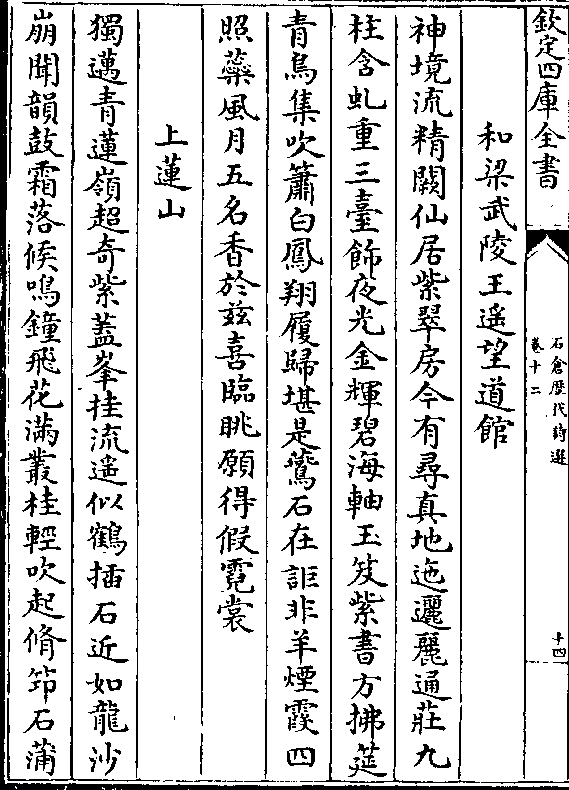 欽定四庫全書
石倉歷代詩選
卷十二
十四
和梁武陵王遥望道館
神境流精闕仙居紫翠房今有尋真地迤邐麗通莊九
柱含虬重三臺飾夜光金輝碧海軸玉笈紫書方拂筵
青鳥集吹簫白鳳翔履歸堪是鶯石在詎非羊煙霞四
照蘂風月五名香於兹喜臨眺願得假霓裳
上蓮山
獨邁青蓮嶺超奇紫蓋峯挂流遥似鶴插石近如龍沙
崩聞韻鼓霜落候鳴鐘飛花滿叢桂輕吹起脩笻石蒲